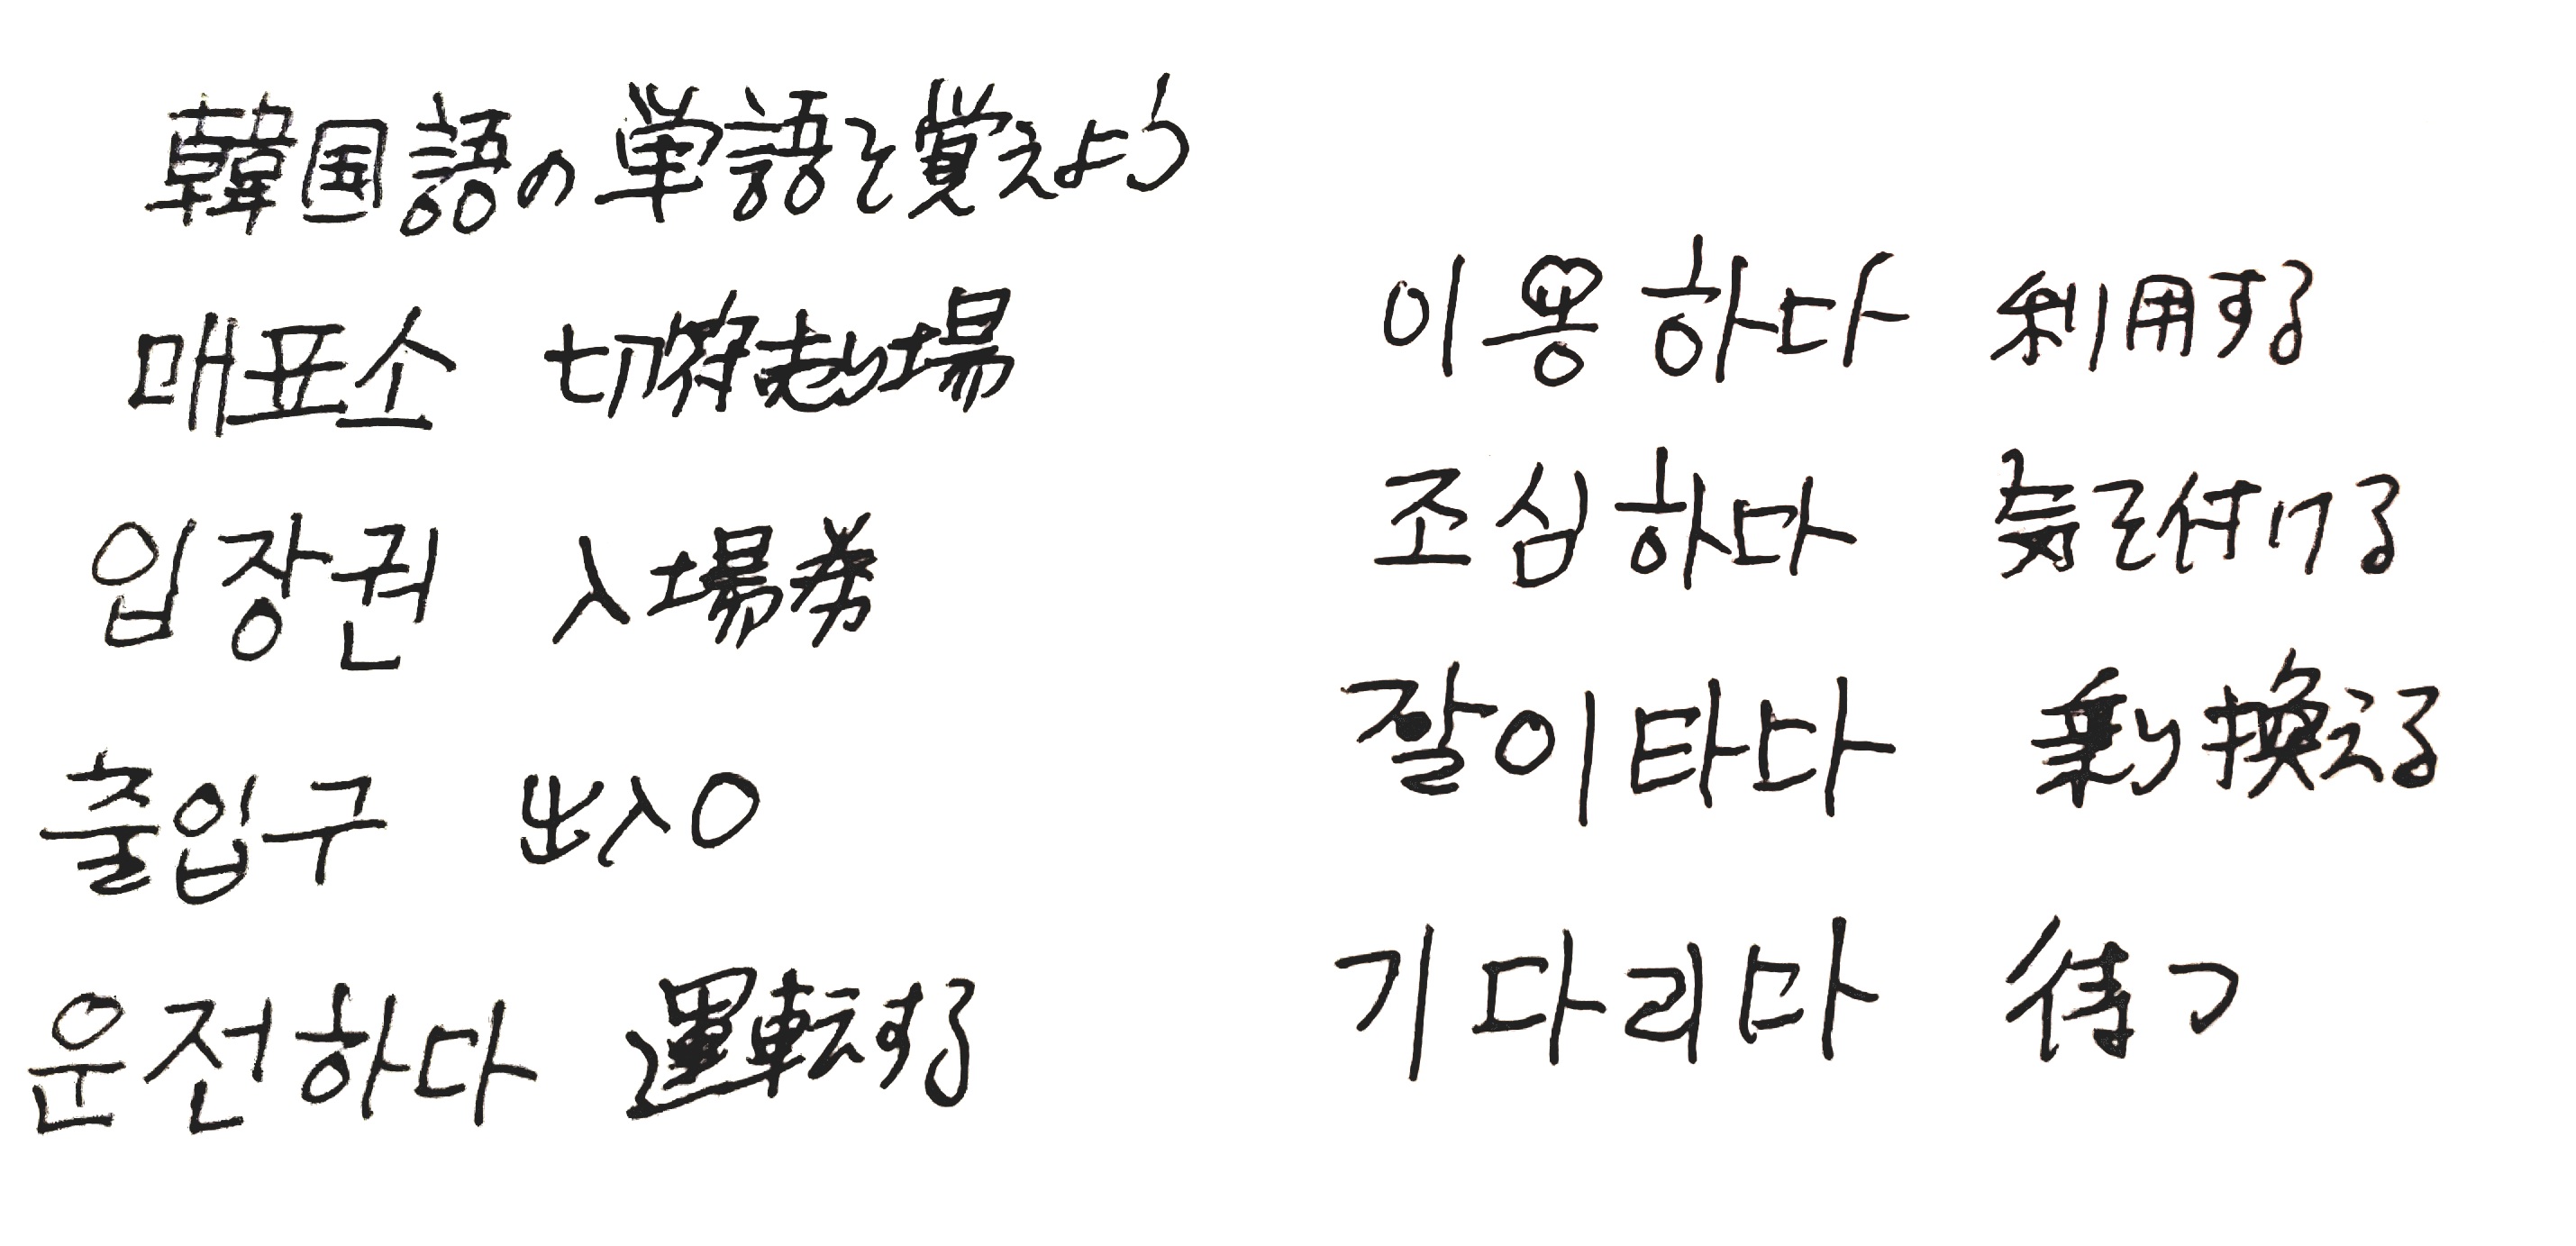 韓国語の単語を覚えよう
매표소 切符売り場
입장권 入場券
출입구 出入口
운전하다 運転する
이용하다 利用する
조심하다 気を付ける
잘이타다 乗り換える
기다리다 待つ